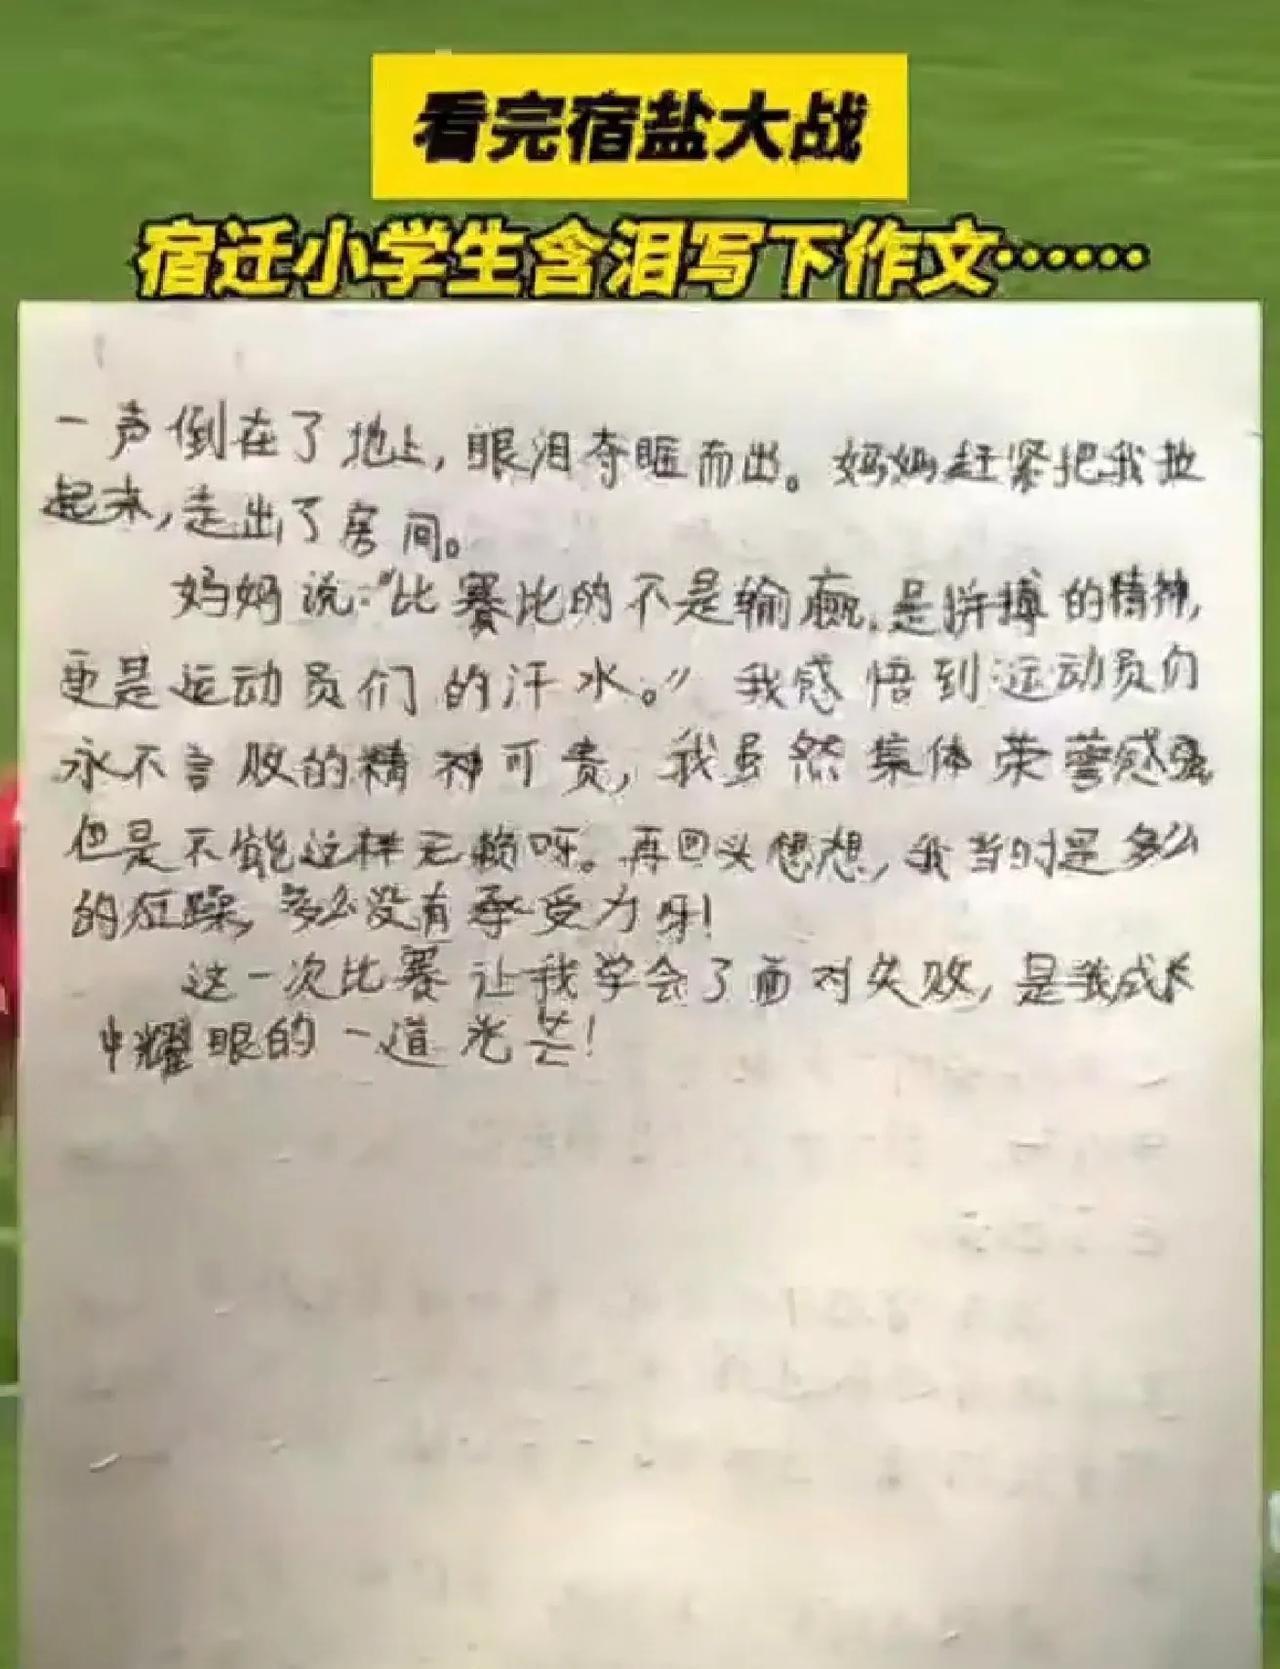 看完宿盐大战
宿迁小学生含泪写下作文……
一声倒在了地上,眼泪夺眶而出。妈妈赶紧把我拉
起来,走出了房间。
妈妈说:“比赛比的不是输赢,是拼搏的精神,
更是运动员们的汗水。”我感悟到运动员们
永不言败的精神可贵,我虽然集体荣誉感强
但是不能这样无赖呀。再回头想想,我当时是多么
的 躁,多么没有承受力呀!
这一次比赛让我学会了面对失败,是我成长
中耀眼的一道光芒!